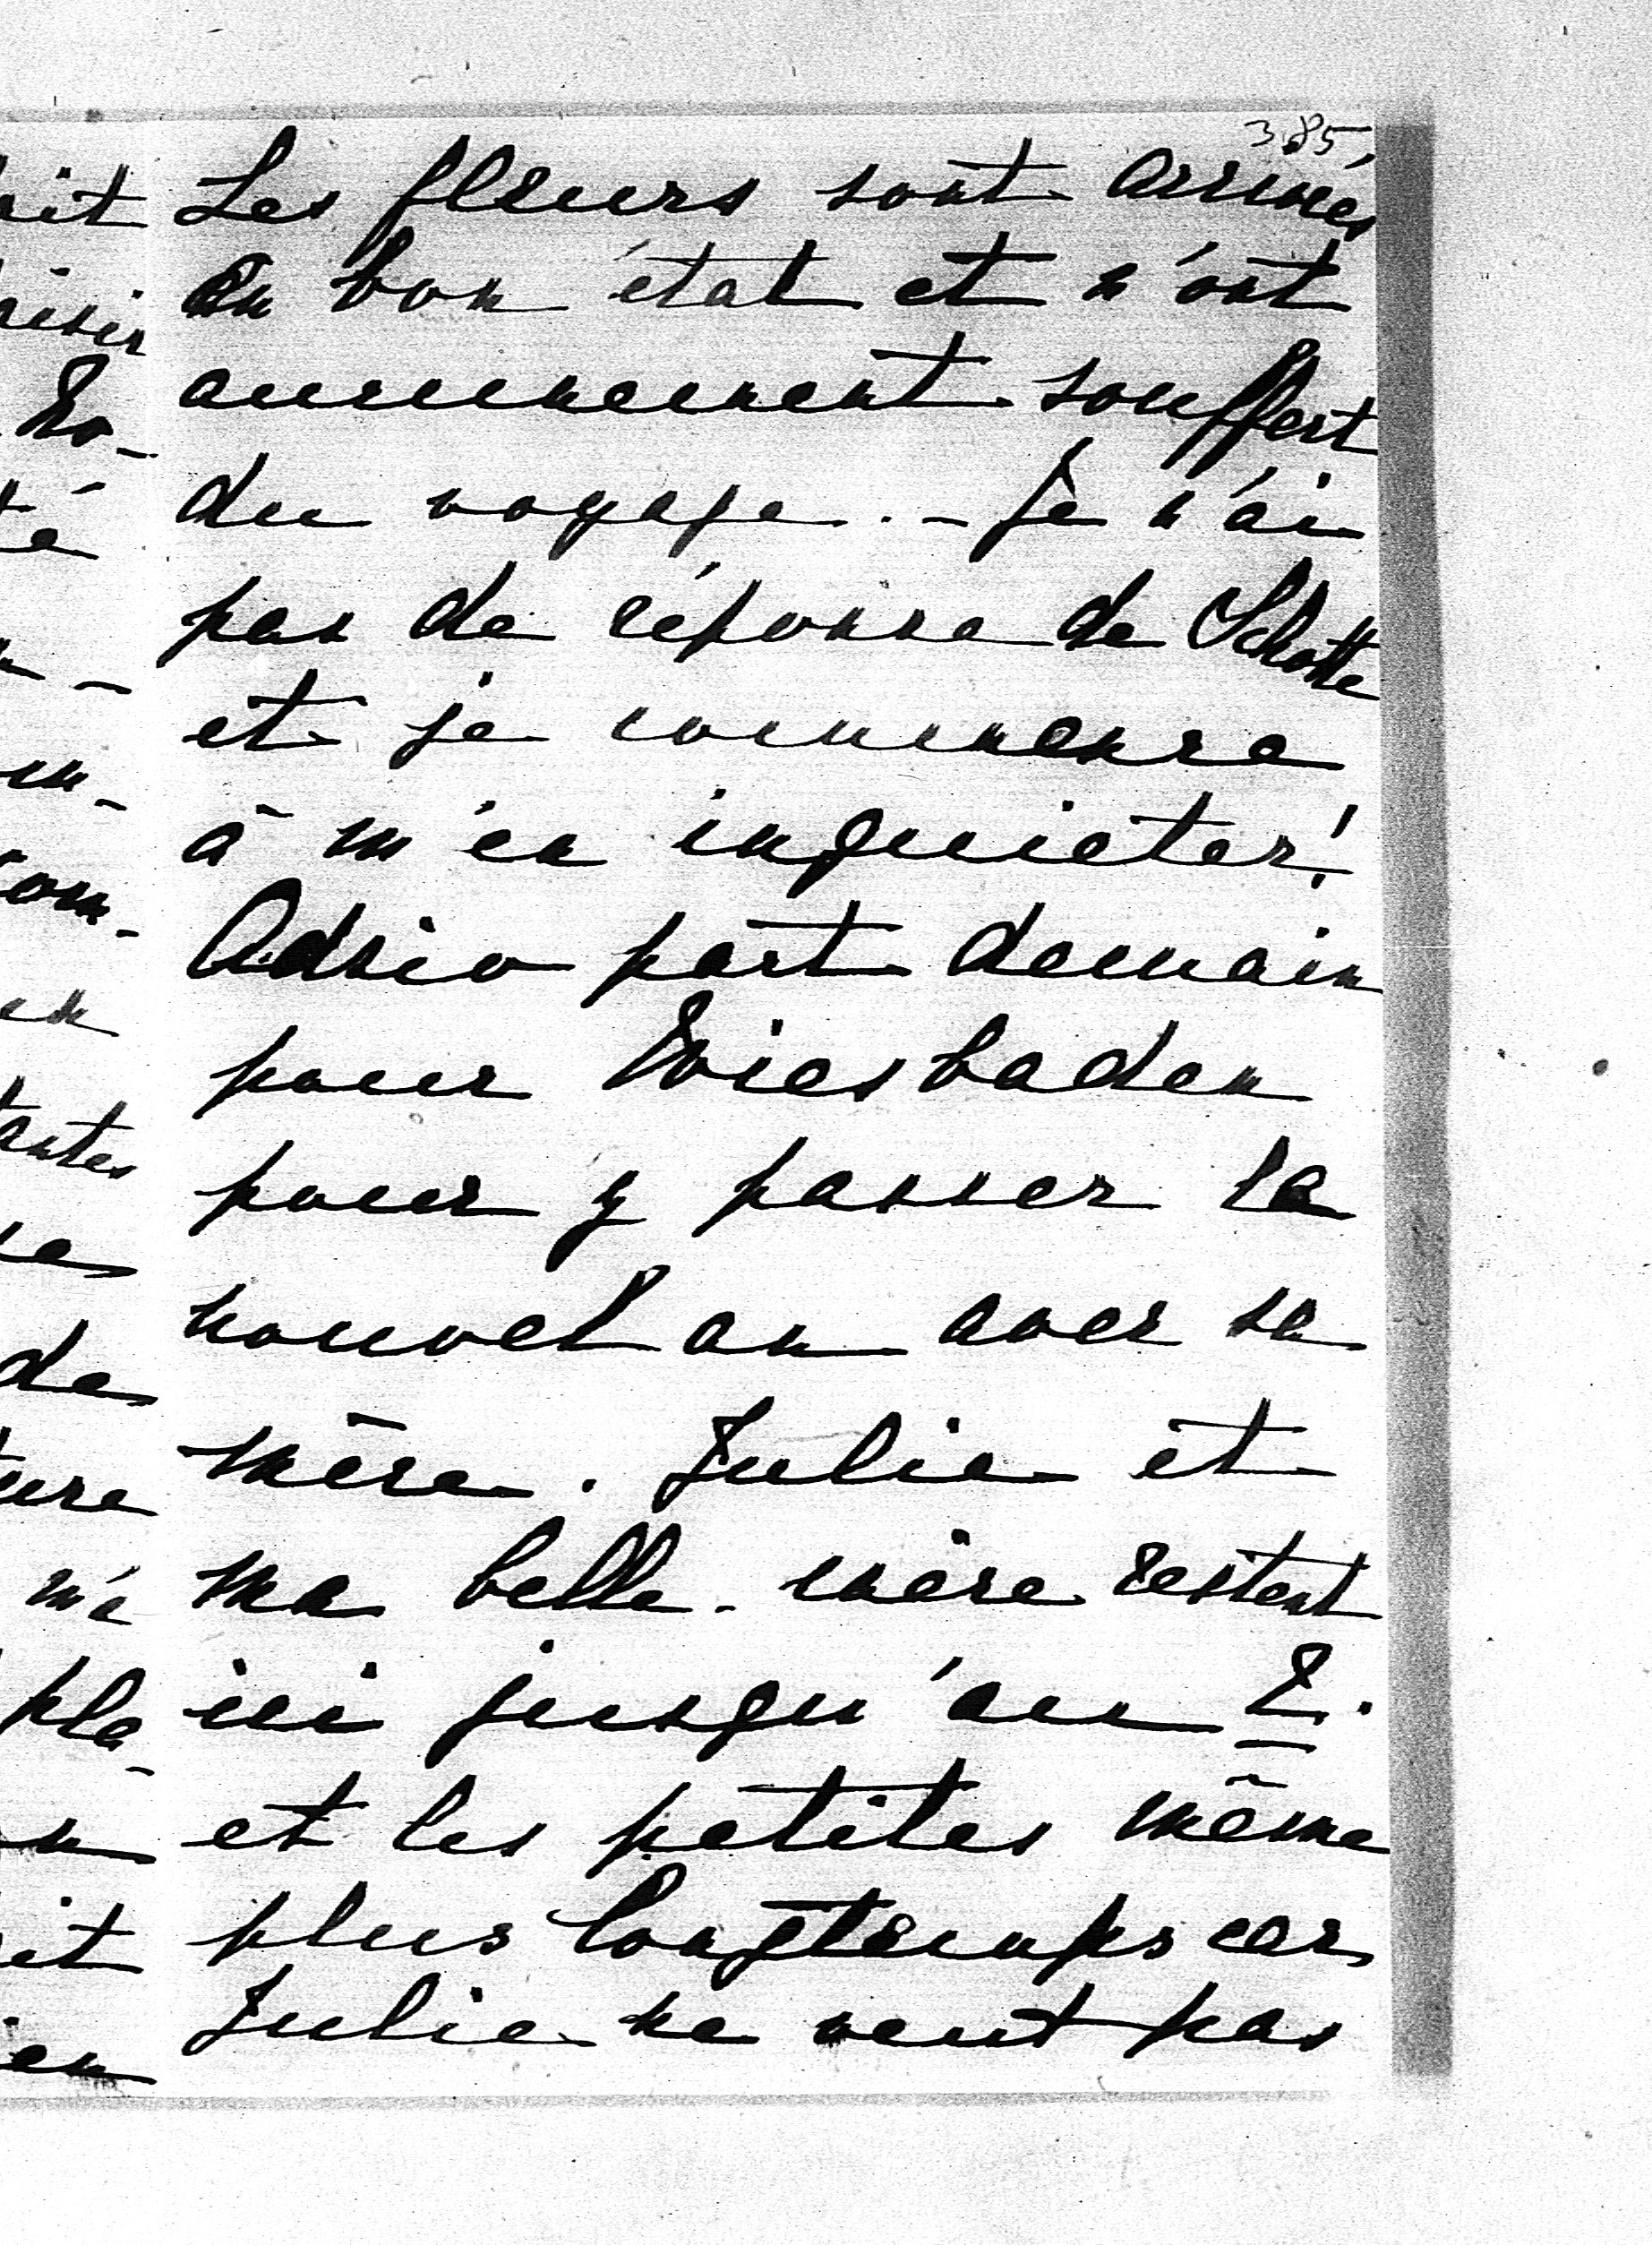 385
Les fleurs sont arrivés
en bon état et n'ont
aucunement souffert
du voyage. - Je n'ai
pas de réponse de Schotte
et je commence
à m'en inquieter!
Adrio part demain
pour Wiesbaden
pour y passer la
nouvel an avec sa
mère. Julie et
ma belle-mère restent
ici jusqu'au 2.
et les petites même
plus longtemps car
Julie ne veut pas